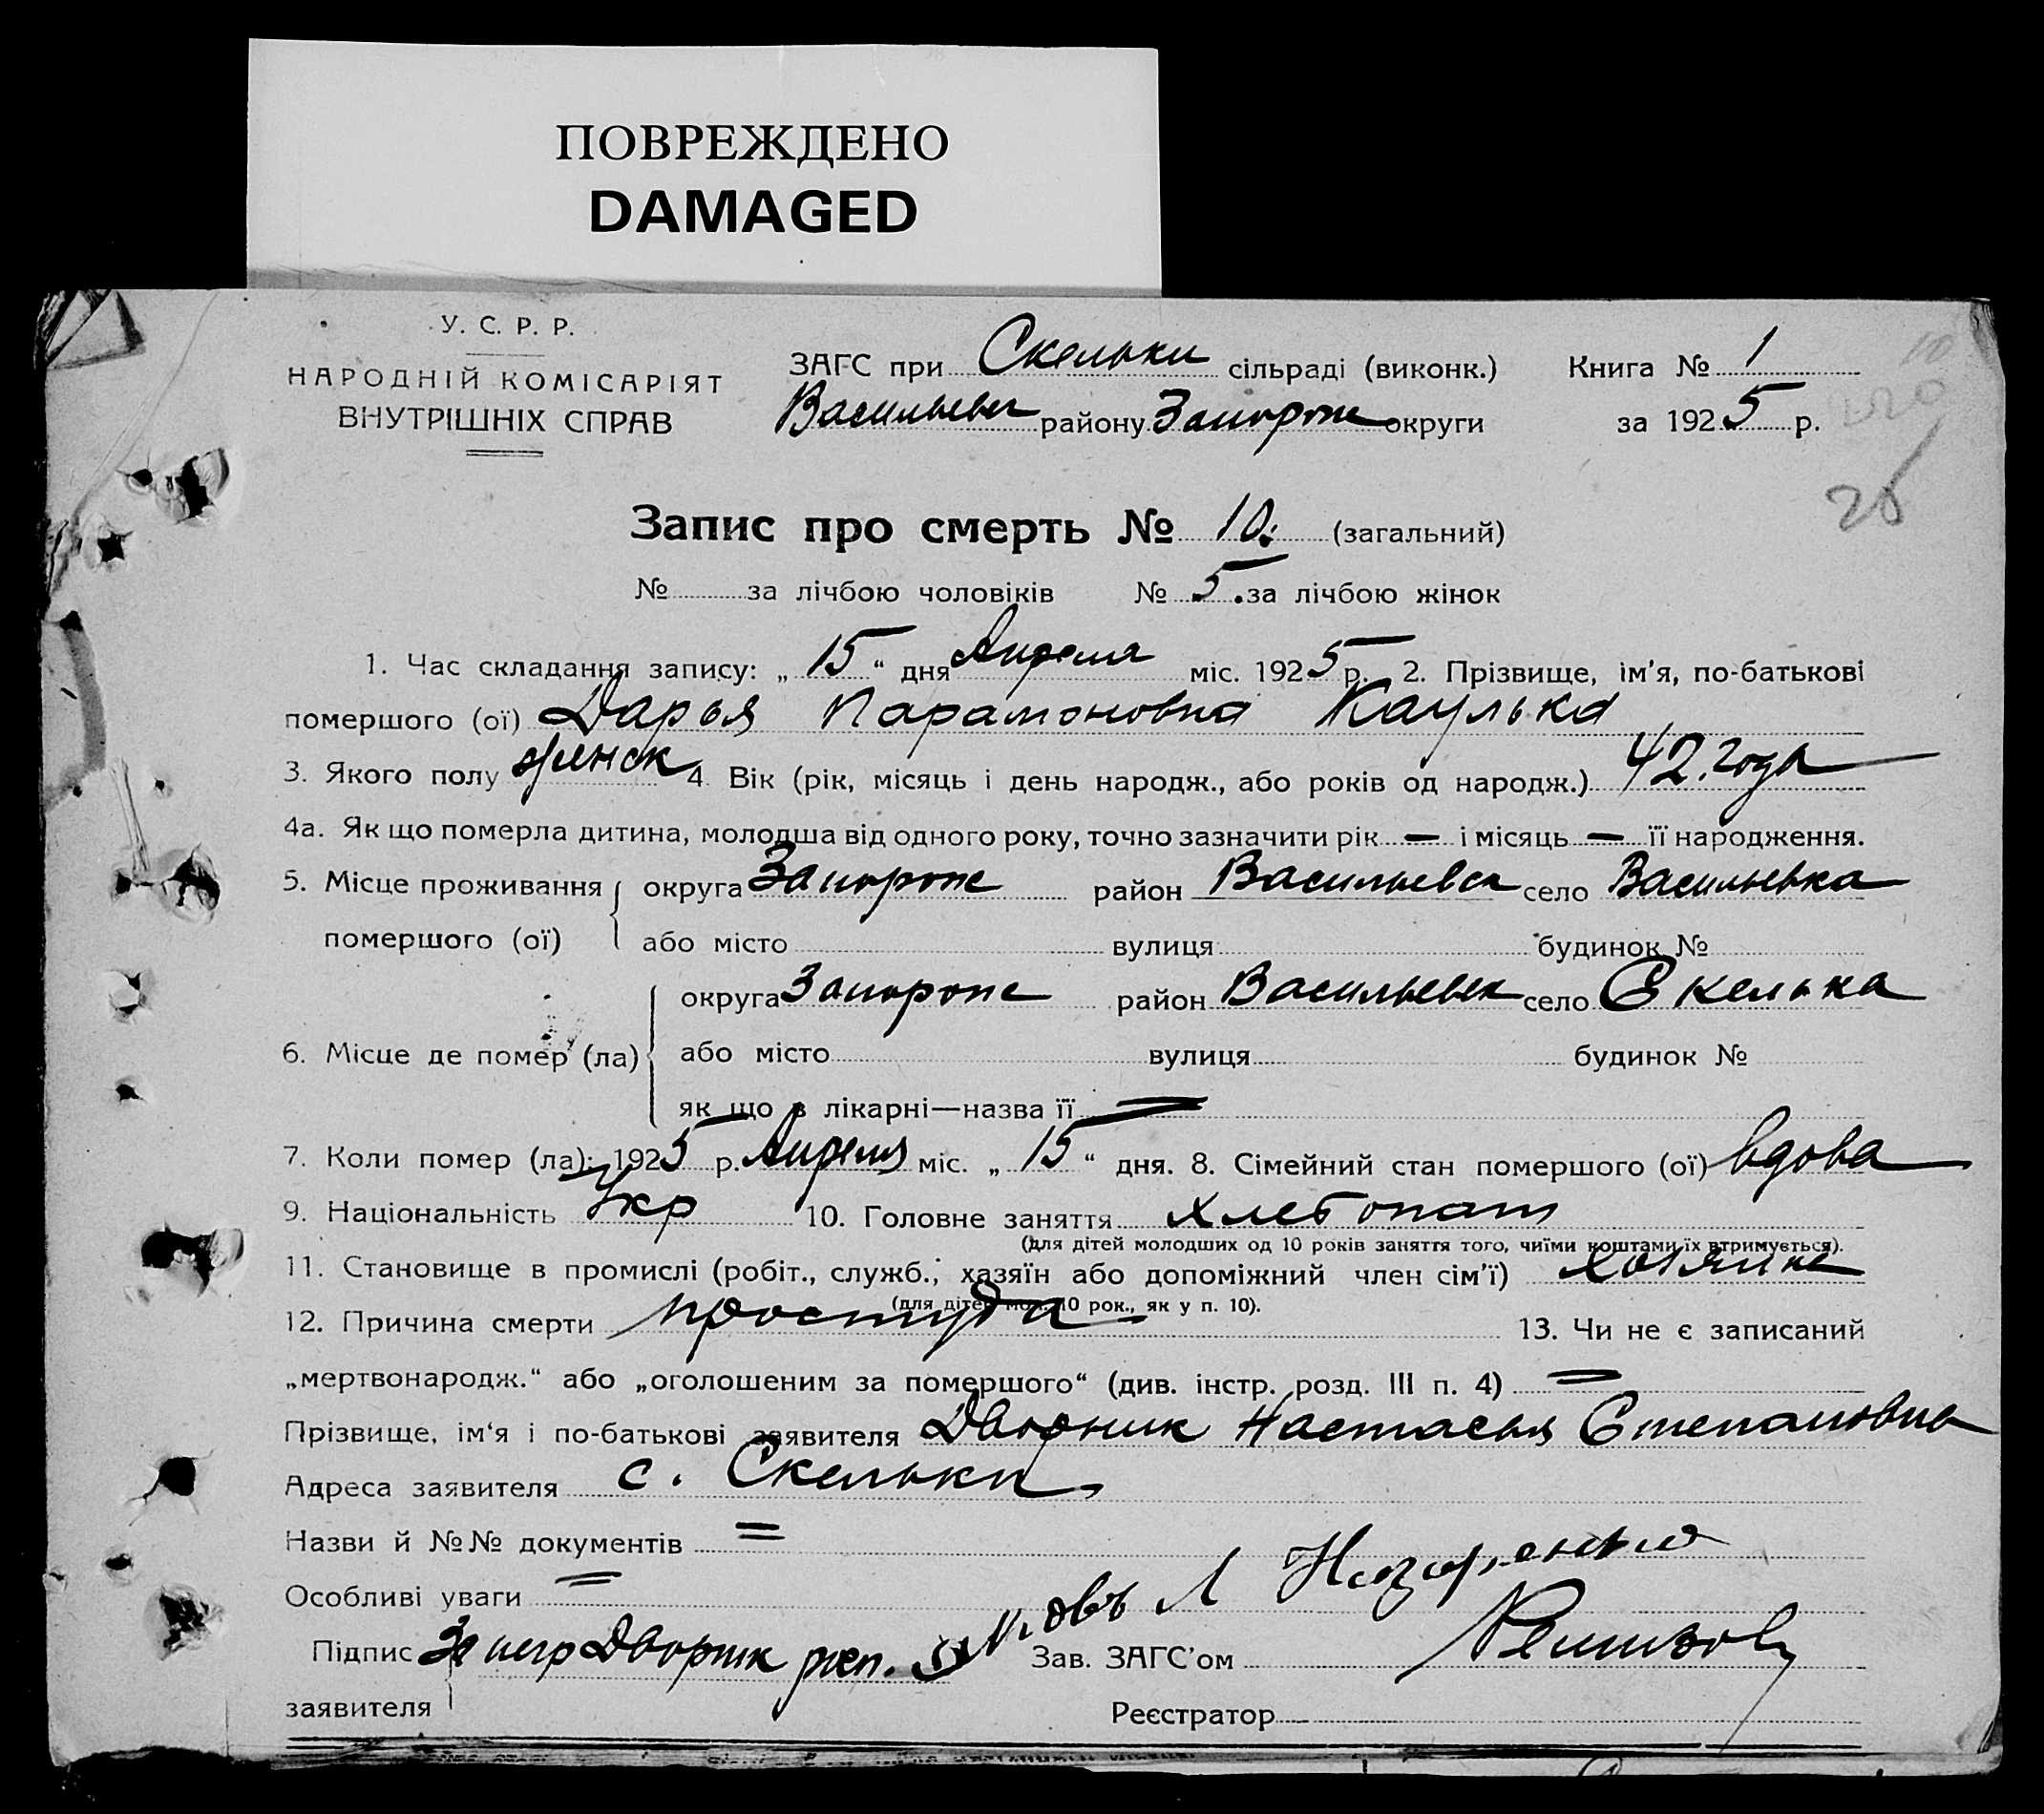 ПОВРЕЖДЕНО
DAMAGED
У. С. Р. Р.
НАРОДНІЙ КОМІСАРІЯТ
ВНУТРІШНІХ СПРАВ
ЗАГС при Скельки сільраді (виконк.) Книга № 1
Васильевск району Запорож округи за 1925 р.
25
Запис про смерть № 10. (загальний)
№ за лічбою чоловіків № 5. за лічбою жінок
1. Час складання запису: „15“ дня Апреля міс. 1925 р. 2. Прізвище, ім'я, по-батькові
помершого (ої) Дарья Парамоновна Каулька
3. Якого полу женск 4. Вік (рік, місяць і день народж., або років од народж.) 42. года
4а. Як що померла дитина, молодша від одного року, точно зазначити рік — і місяць — її народження.
5. Місце проживання округа Запорож район Васильевск село Васильевка
помершого (ої) або місто вулиця будинок №
округа Запорож район Васильевск село Скелька
6. Місце де помер (ла) або місто вулиця будинок №
як що в лікарні—назва її =
7. Коли помер (ла): 1925 р. Апреля міс. „15“ дня. 8. Сімейний стан помершого (ої) вдова
9. Національність Укр 10. Головне заняття хлебопаш
(для дітей молодших од 10 років заняття того, чиїми коштами їх втримується).
11. Становище в промислі (робіт., служб., хазяїн або допоміжний член сім'ї) хозяика
(для дітей мол. 10 рок., як у п. 10).
12. Причина смерти простуда 13. Чи не є записаний
„мертвонародж.“ або „оголошеним за помершого“ (див. інстр. розд. III п. 4) =
Прізвище, ім'я і по-батькові заявителя Дворник Настасья Степановна
Адреса заявителя с. Скельки
Назви й №№ документів =
Особливі уваги =
Підпис За негр Дворник Зав. ЗАГС'ом
заявителя Реєстратор